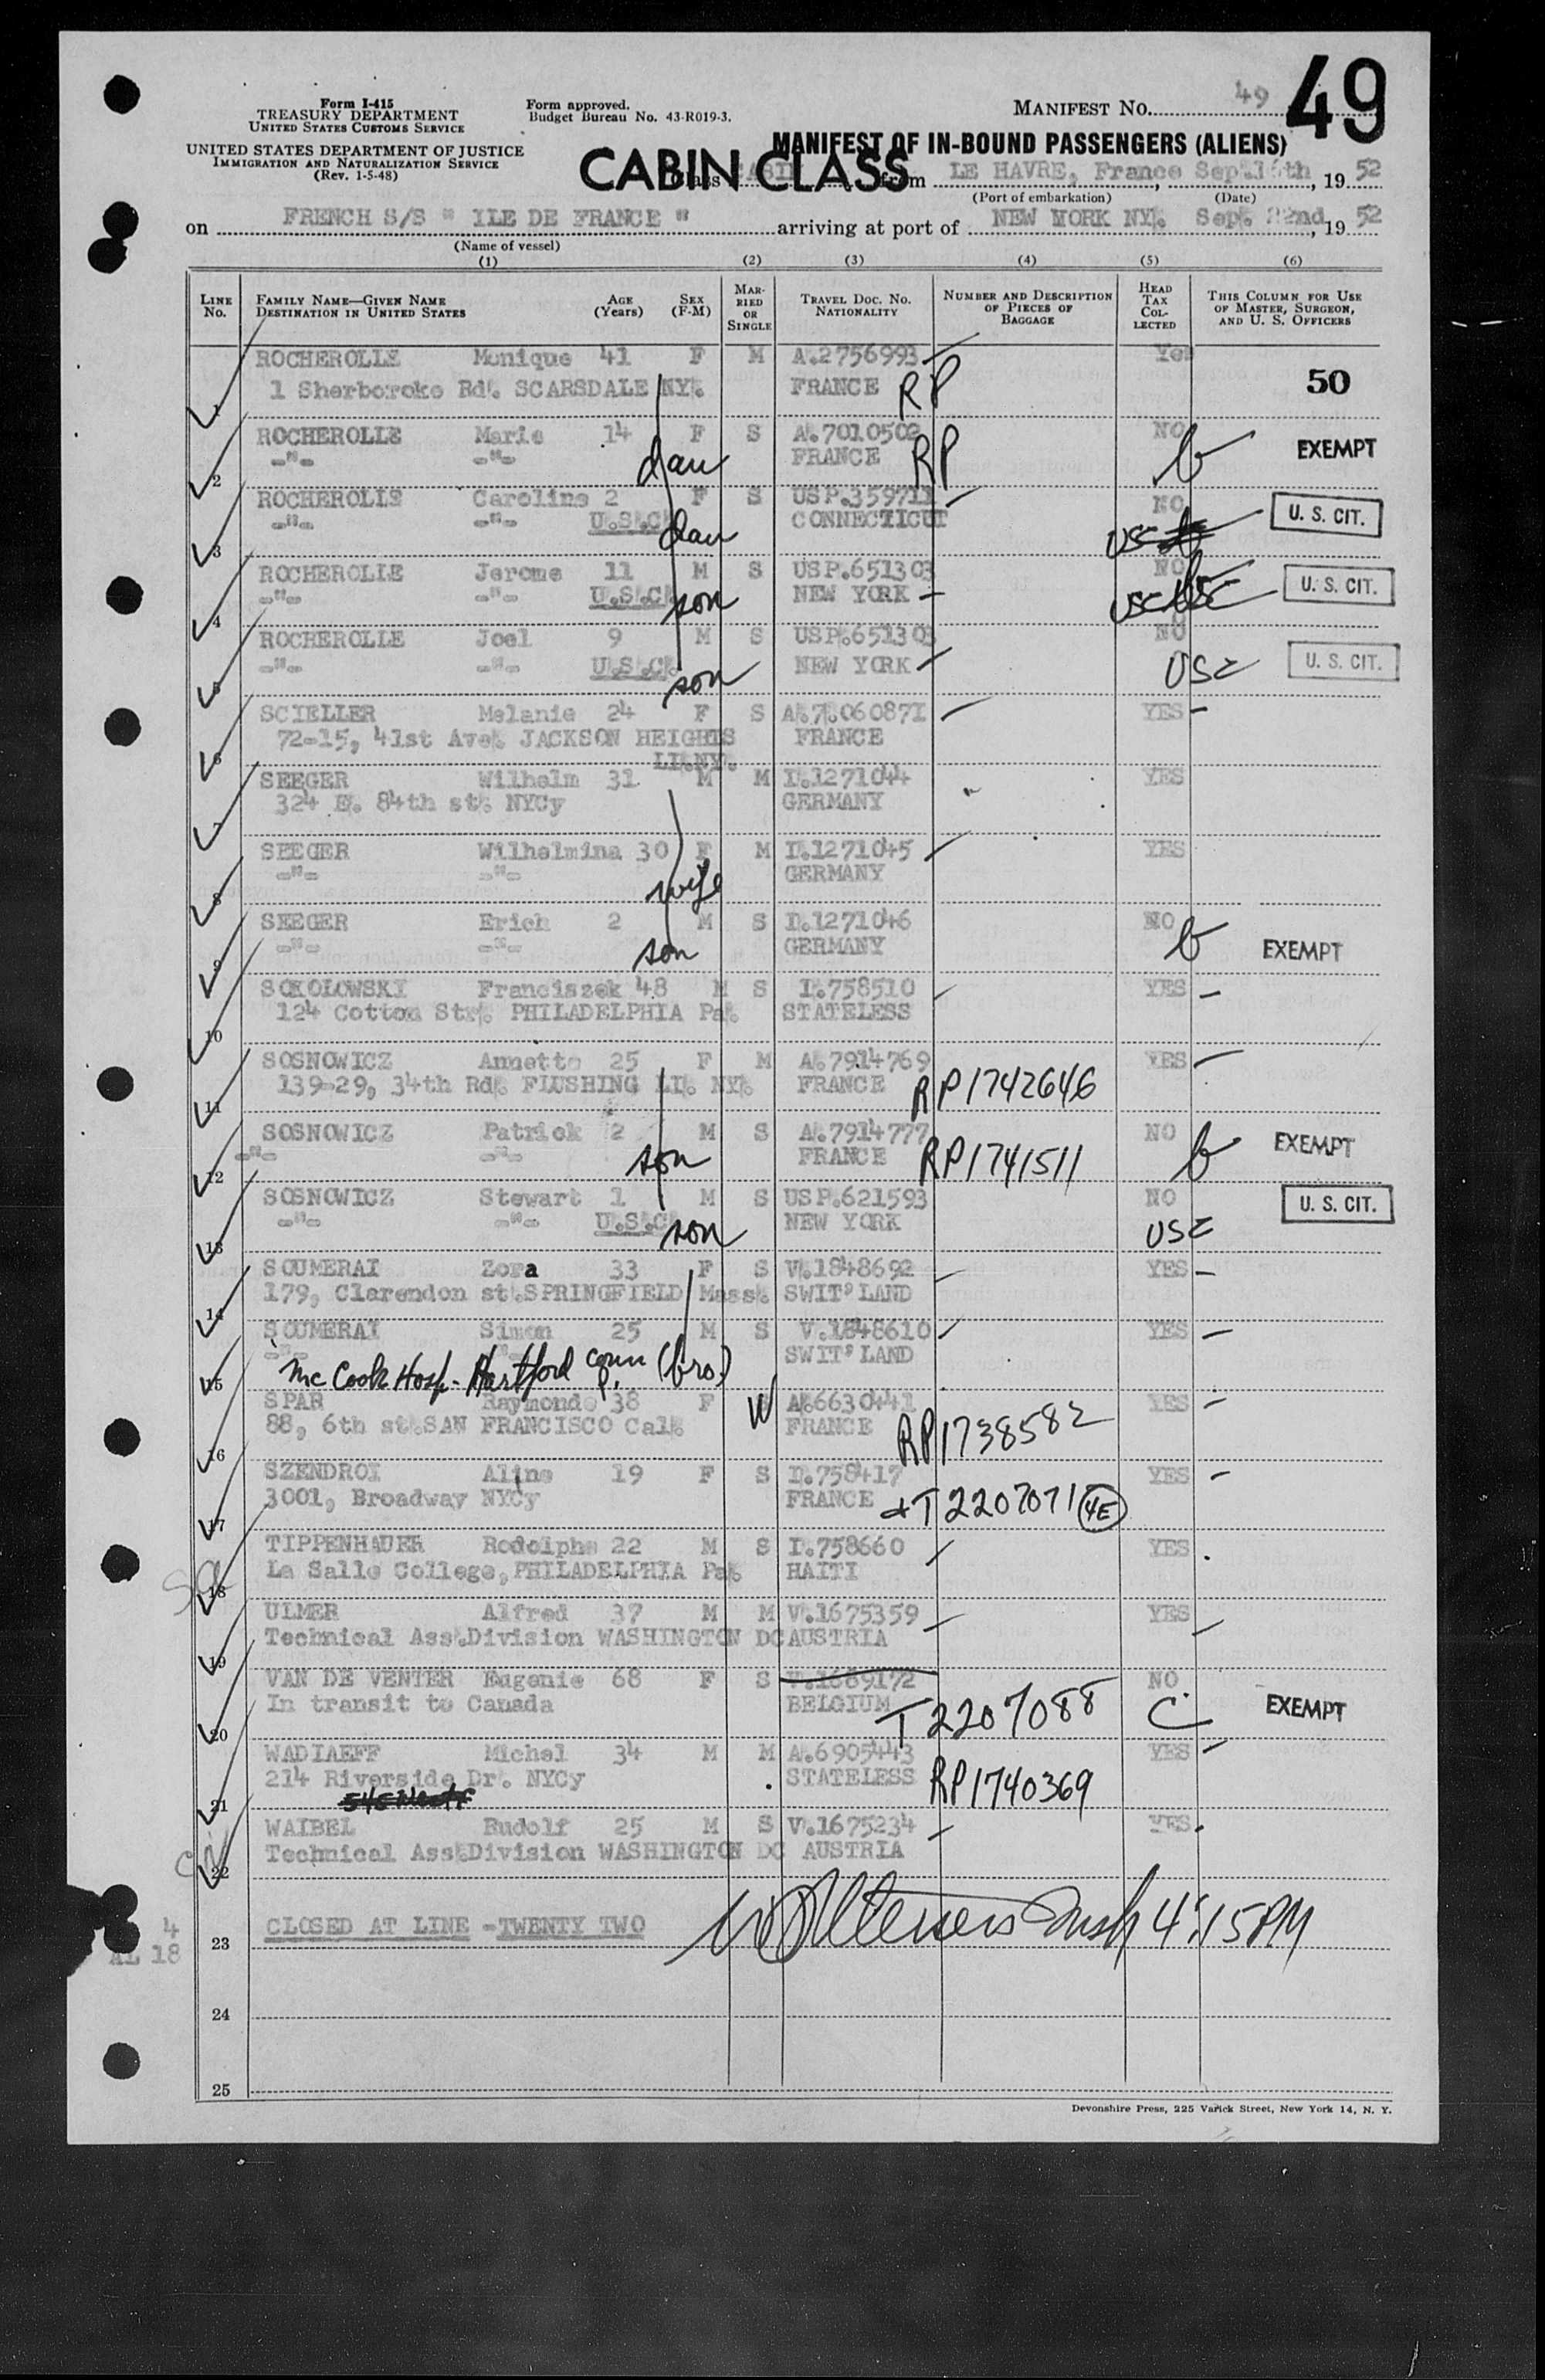 49
Form I-415
TREASURY DEPARTMENT
UNITED STATES CUSTOMS SERVICE
UNITED STATES DEPARTMENT OF JUSTICE
IMMIGRATION AND NATURALIZATION SERVICE
(Rev. 1-5-48)
Form approved.
Budget Bureau No. 43-R019-3.
MANIFEST NO. 49
MANIFEST OF IN-BOUND PASSENGERS (ALIENS)
CABIN CLASS
Class CABIN from LE HAVRE, France, Sep. 16th, 1952
(Port of embarkation) (Date)
on FRENCH S/S " ILE DE FRANCE " arriving at port of NEW YORK NY. Sep. 22nd, 1952
(Name of vessel)
(1) (2) (3) (4) (5) (6)
LINE NO. FAMILY NAME—GIVEN NAME DESTINATION IN UNITED STATES AGE (Years) SEX (F-M) MARRIED OR SINGLE TRAVEL DOC. NO. NATIONALITY NUMBER AND DESCRIPTION OF PIECES OF BAGGAGE HEAD TAX COLLECTED THIS COLUMN FOR USE OF MASTER, SURGEON, AND U. S. OFFICERS
ROCHEROLLE Monique 41 F M A.2756993 Yes
1 1 Sherboroke Rd. SCARSDALE NY. FRANCE RP 50
ROCHEROLLE Marie 14 F S A.7010502 NO EXEMPT
2 -"- -"- dau FRANCE RP b
ROCHEROLLE Caroline 2 F S USP.359711 NO U. S. CIT.
3 -"- -"- U.S.C. dau CONNECTICUT USC
ROCHEROLLE Jerome 11 M S USP.651303 NO U. S. CIT.
4 -"- -"- U.S.C. son NEW YORK USC USC
ROCHEROLLE Joel 9 M S USP.651303 NO U. S. CIT.
5 -"- -"- U.S.C. son NEW YORK USC
SCIELLER Melanie 24 F S A.7.060871 YES
6 72-15, 41st Ave. JACKSON HEIGHTS FRANCE
LI.NY.
SEEGER Wilhelm 31 M M I.1271044 YES
7 324 E. 84th st. NYCy GERMANY
SEEGER Wilhelmina 30 F M I.1271045 YES
8 -"- -"- wife GERMANY
SEEGER Erich 2 M S I.1271046 NO
9 -"- -"- son GERMANY b EXEMPT
SOKOLOWSKI Franciszek 48 M S I.758510 YES
10 124 Cotton Str. PHILADELPHIA Pa. STATELESS
SOSNOWICZ Annette 25 F M A.7914769 YES
11 139-29, 34th Rd. FLUSHING LI. NY. FRANCE RP1742646
SOSNOWICZ Patrick 2 M S A.7914777 NO EXEMPT
12 -"- -"- son FRANCE RP1741511 b
SOSNOWICZ Stewart 1 M S USP.621593 NO U. S. CIT.
13 -"- -"- U.S.C. son NEW YORK USC
SOUMERAI Zora 33 F S V.1848692 YES
14 179, Clarendon st.SPRINGFIELD Mass. SWIT'LAND
SOUMERAI Simon 25 M S V.1848610 YES
15 -"- Mc Cook Hosp- Hartford Conn (bro) SWIT'LAND
SPAR Raymonde 38 F W A.6630441 YES
16 88, 6th st.SAN FRANCISCO Cal. FRANCE RP1738582
SZENDROI Aline 19 F S I.758417 YES
17 3001, Broadway NYCy FRANCE T2207071 4E
TIPPENHAUER Rodolphe 22 M S I.758660 YES
18 La Salle College, PHILADELPHIA Pa. HAITI
ULMER Alfred 37 M M V.1675359 YES
19 Technical Ass.Division WASHINGTON DC AUSTRIA
VAN DE VENTER Eugenie 68 F S V.1689172 NO
20 In transit to Canada BELGIUM T2207088 C EXEMPT
WADIAEFF Michel 34 M M A.6905443 YES
21 214 Riverside Dr. NYCy STATELESS RP1740369
WAIBEL Rudolf 25 M S V.1675234 YES
22 Technical Ass.Division WASHINGTON DC AUSTRIA
23 CLOSED AT LINE -TWENTY TWO 4:15PM
4
18
24
25
Devonshire Press, 225 Varick Street, New York 14, N. Y.